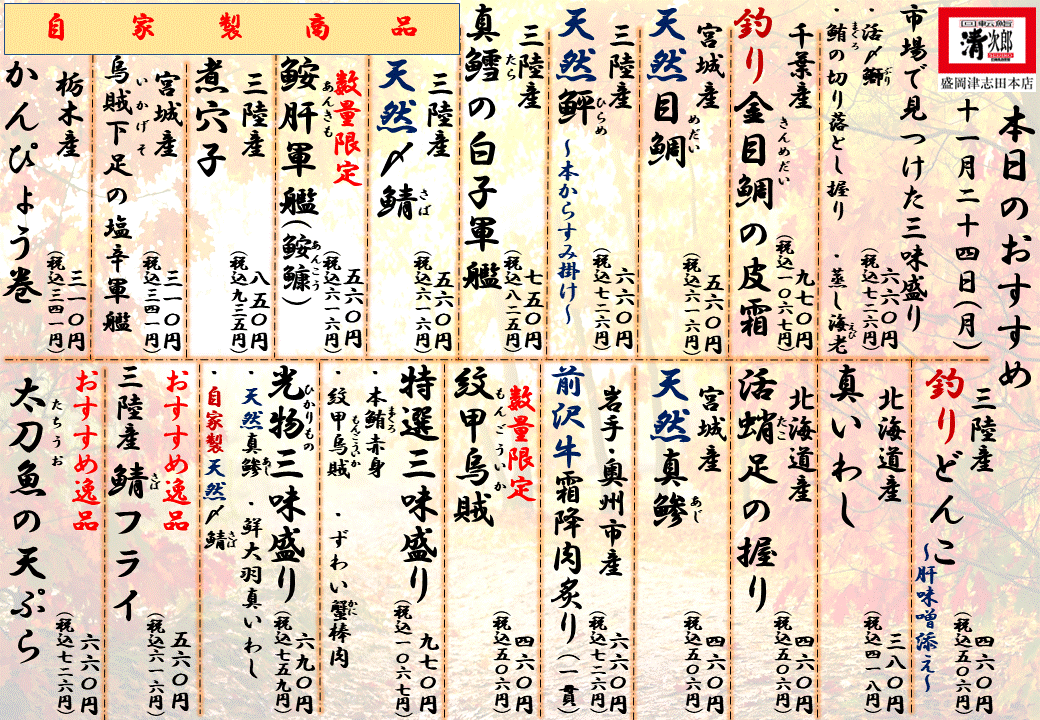 回転鮨
清次郎
盛岡津志田本店
本日のおすすめ
十一月二十四日(月)
市場で見つけた三味盛り
・活〆鰤 ・鮪の切り落とし握り ・蒸し海老
ぶり
まぐろ
えび
六六〇円
(税込七二六円)
千葉産
釣り金目鯛の皮霜
きんめだい
九七〇円
(税込一〇六七円)
宮城産
天然目鯛
めだい
五六〇円
(税込六一六円)
三陸産
天然鮃
ひらめ
~本からすみ掛け~
六六〇円
(税込七二六円)
三陸産
真鱈の白子軍艦
たら
七五〇円
(税込八二五円)
自家製商品
三陸産
天然〆鯖
さば
五六〇円
(税込六一六円)
数量限定
鮟肝軍艦(鮟鱇)
あんきも
あんこう
五六〇円
(税込六一六円)
三陸産
煮穴子
八五〇円
(税込九三五円)
宮城産
烏賊下足の塩辛軍艦
いかげそ
三一〇円
(税込三四一円)
栃木産
かんぴょう巻
三一〇円
(税込三四一円)
三陸産
釣りどんこ
~肝味噌添え~
四六〇円
(税込五〇六円)
北海道産
真いわし
三八〇円
(税込四一八円)
北海道産
活蛸足の握り
たこ
四六〇円
(税込五〇六円)
宮城産
天然真鯵
あじ
四六〇円
(税込五〇六円)
岩手・奥州市産
前沢牛霜降肉炙り(一貫)
六六〇円
(税込七二六円)
数量限定
紋甲烏賊
もんごういか
四六〇円
(税込五〇六円)
特選三味盛り
・本鮪赤身 ・ずわい蟹棒肉
まぐろ
かに
・紋甲烏賊
もんごういか
九七〇円
(税込一〇六七円)
光物三味盛り
ひかりもの
・天然真鯵 ・鮮大羽真いわし
あじ
・自家製天然〆鯖
さば
六九〇円
(税込七五九円)
おすすめ逸品
三陸産 鯖フライ
さば
五六〇円
(税込六一六円)
おすすめ逸品
太刀魚の天ぷら
たちうお
六六〇円
(税込七二六円)